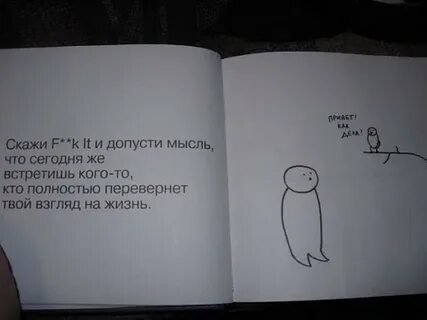 Скажи F**k It и допусти мысль,
что сегодня же
встретишь кого-то,
кто полностью перевернет
твой взгляд на жизнь.
ПРИВЕТ!
КАК
ДЕЛА?